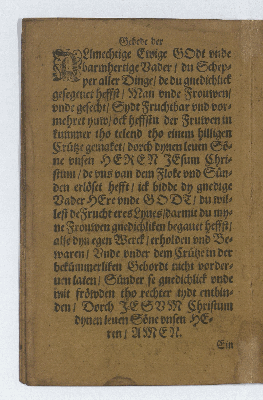 Gebede der
ALmechtige Ewige GODt vnde
barmhertige Vader / du Schep-
per aller Dinge / de du gnedichlick
gesegenet heffst / Man vnde Frouwen /
vnde gesecht / Sydt Fruchtbar vnd vor-
mehret yuw / ock heffstu der Fruwen in
kummer tho telend tho einem hilligen
Crütze gemaket / dorch dynen leuen Sö-
ne vnsen HEREN JEsum Chri-
stum / de vns van dem Floke vnd Sün-
den erlöset hefft / ick bidde dy gnedige
Vader HEre vnde GODT / du wil-
lest de Frucht eres Lyues / darmit du my-
ne Frouwen gnedichliken begauet heffst /
also dyn egen Werck / erholden vnd Be-
waren / Vnde vnder dem Crütze in der
bekümmerliken Gebordt nicht vorder-
uen laten / Sünder se gnedichlick vnde
mit fröwden tho rechter tydt entbin-
den / Dorch JESVM Christum
dynen leuen Söne vnsen HE-
ren / AMEN.
Ein